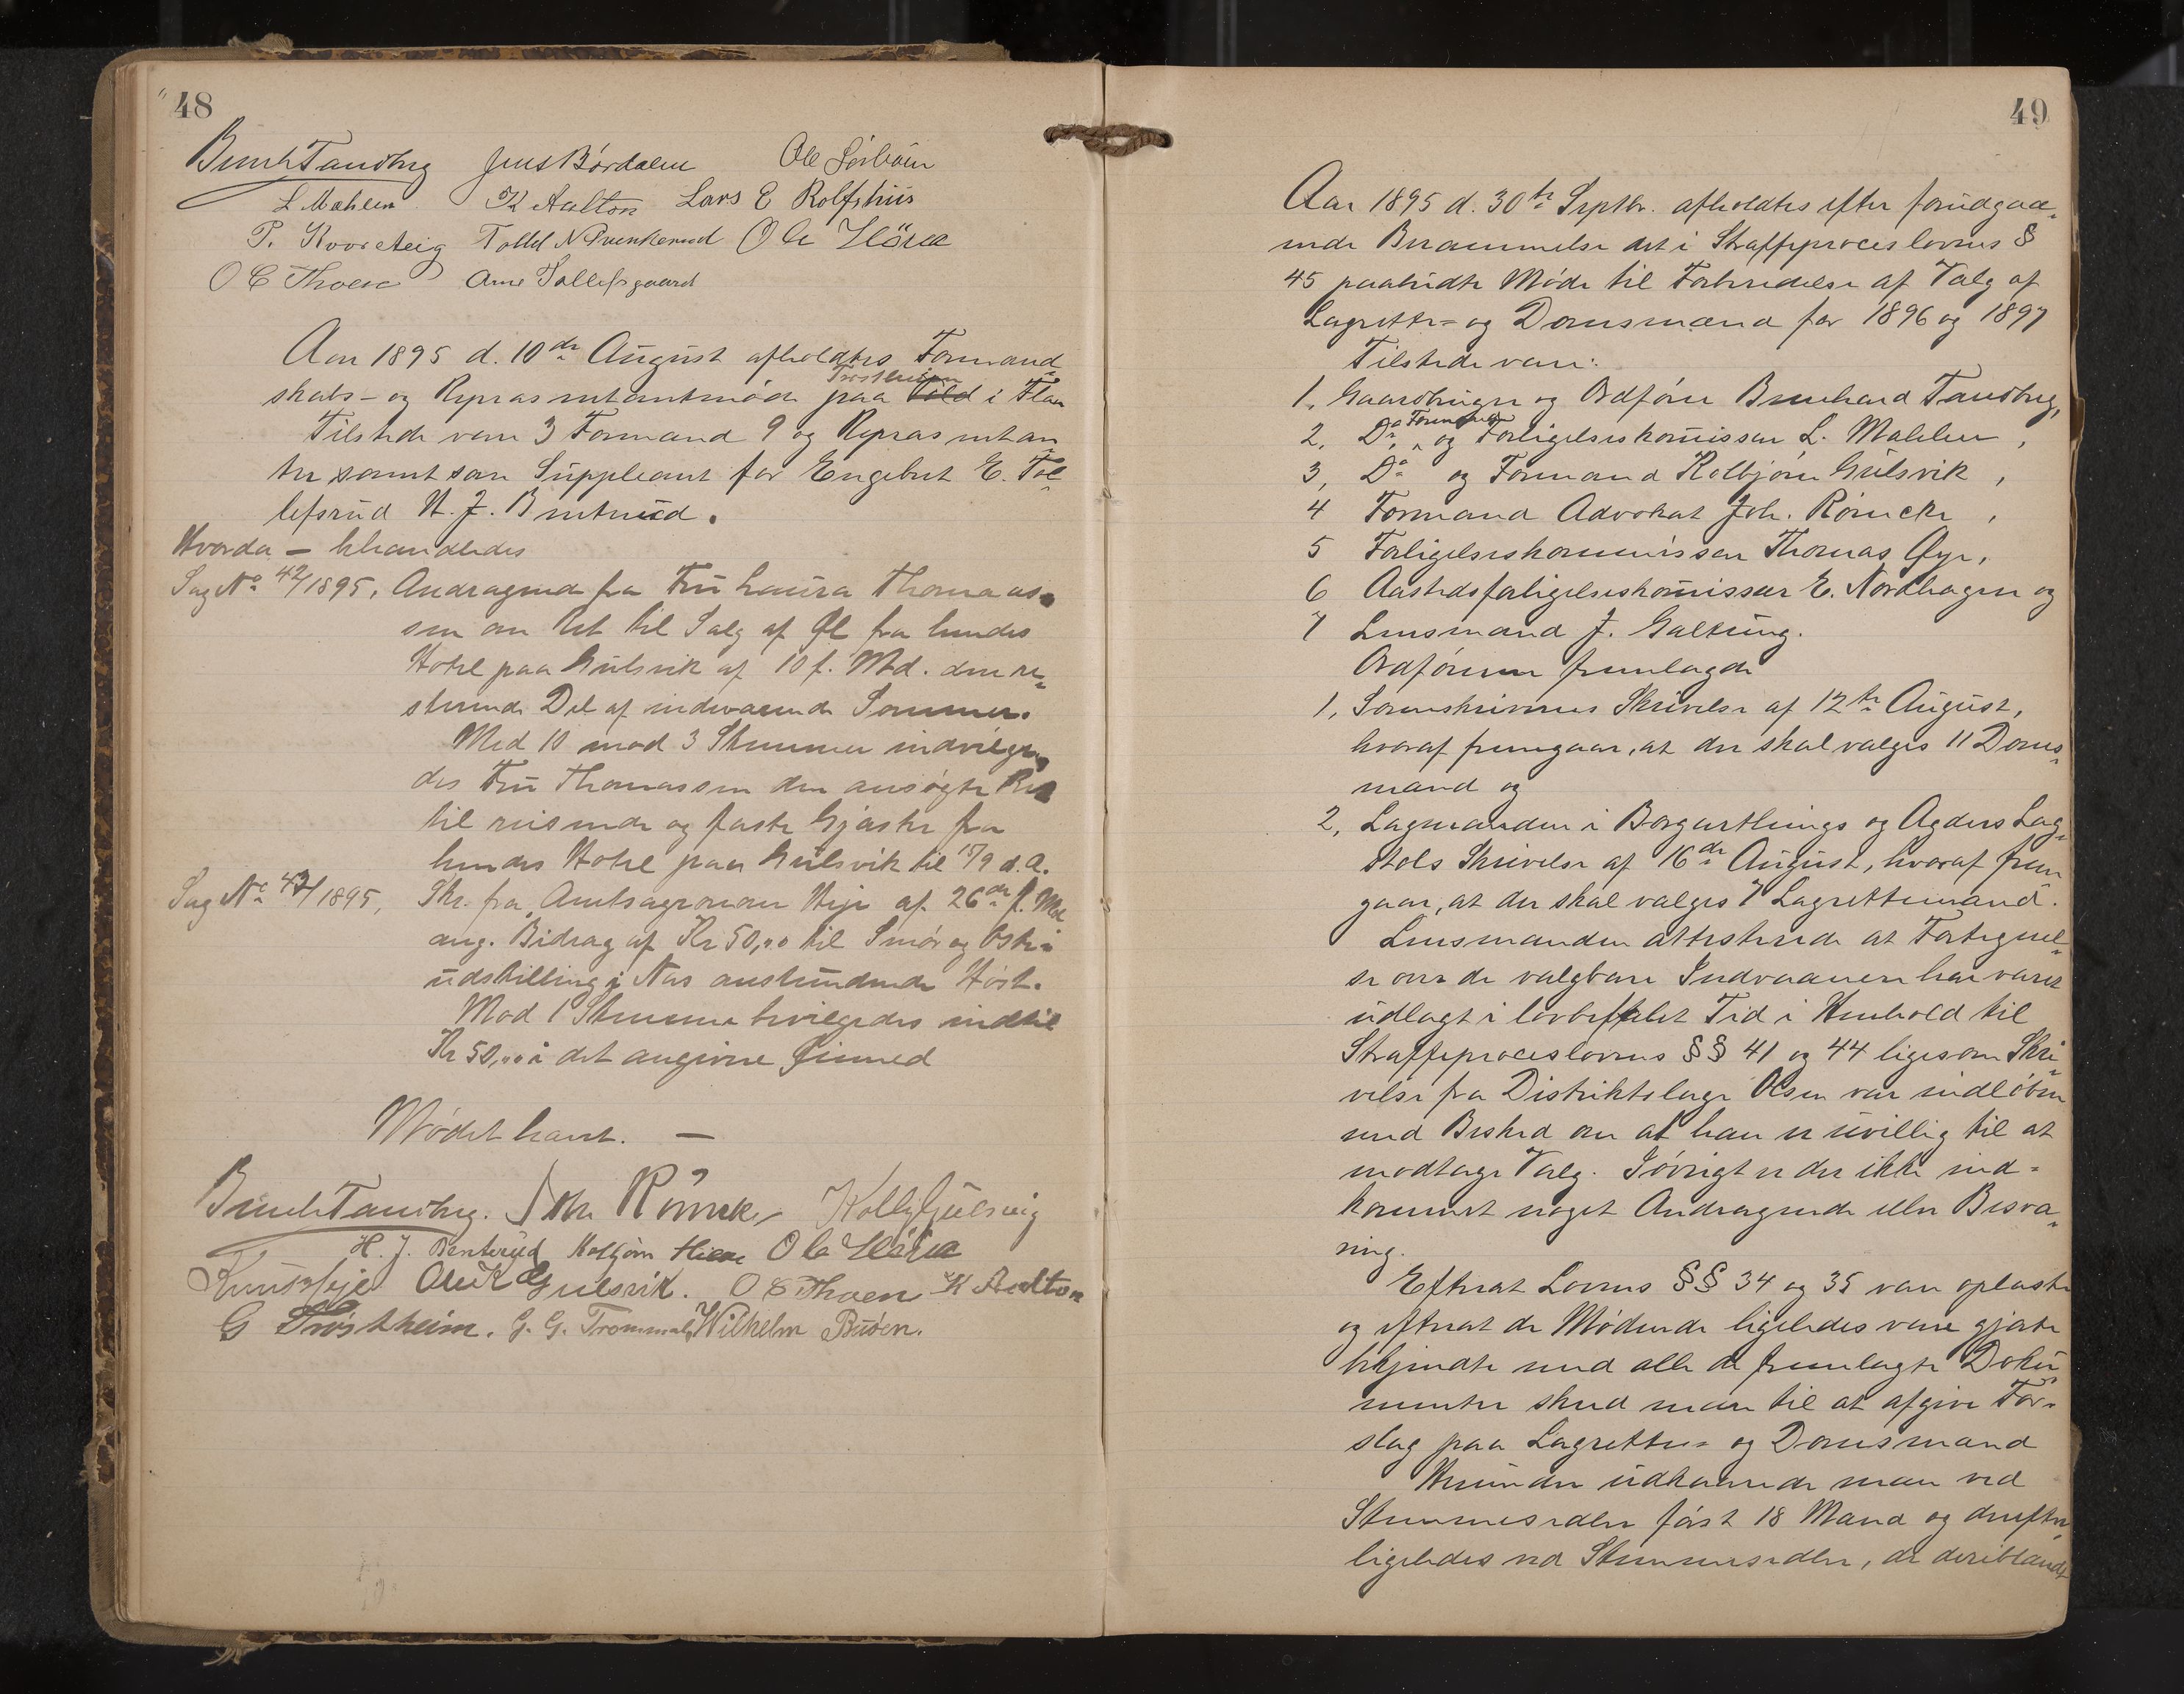 48
Bernh Tandberg Jens Bórdalen Ole Sórbóen
L Mahlen K Aalton Lars E Rolfshus
P. Kvarsteig Tollef N Trunkerud Ole Höva
O E Thoen Arne Tollefsgaard
Aar 1895 d. 10de August afholdtes Formand-
skabs- og Repræsentantmøde paa Trøstheim Vold i Flaa
Tilstede vare 3 Formænd 9 og Repræsentan
ter samt som Suppleant for Engebret E. Tol-
lefsrud H. J. Bentrud.
Hvorda – behandledes
Sag No 42/1895. Andragende fra Fru Laura Thomas-
sen om Ret til Salg af Øl fra hendes
Hotel paa Gulsvik af 10 f. Md. den re-
sterende Del af indeværende Sommer.
Med 10 mod 3 Stemmer indvilge-
des Fru Thomassen den ansøgte Ret
til reisende og faste Gjæster fra
hendes Hotel paa Gulsvik til 15/9 d.A.
Sag No 43/1895. Skr. fra Amtsagronom Heje af 26de f. Md
ang. Bidrag af Kr 50,00 til Smør og Oste-
udstilling i Næs anstundende Høst.
Mod 1 Stemme bevilgedes indtil
Kr 50,00 i det angivne Øiemed
Mødet hævet. –
Bernh Tandberg. Joh Rómcke Kolbj Gulsvig
H. J. Bentrud Kolbjørn Ole Höva
Knut Heje Ole K Gulsvik. O E Thoen K Aalton
G Tröstheim. G. G. Trommald Wilhelm Buøen.
49
Aar 1895 d. 30te Septbr. afholdtes efter forudgaa-
ende Berammelse det i Straffeproceslovens §
45 paabudte Møde til Forberedelse af Valg af
Lagrette= og Domsmænd for 1896 og 1897
Tilstede vare:
1. Gaardbruger og Ordfører Bernhard Tandberg,
2. Do Formand og Forligelseskomissær L. Mahlen,
3, Do og Formand Kolbjørn Gulsvik,
4 Formand Advokat Joh. Rómcke,
5 Forligelseskommissær Thomas Øye,
6 Aastedsforligelseskomissær E. Nordhagen og
7 Lensmand J. Galtung.
Ordføreren fremlagde
1, Sorenskriverens Skrivelse af 12te August,
hvoraf fremgaar, at der skal vælges 11 Doms-
mænd og
2, Lagmanden i Borgarthings og Agders Lag-
stols Skrivelse af 16de August, hvoraf frem
gaar, at der skal vælges 7 Lagrettemænd.
Lensmanden attesterede at Fortegnel-
se over de valgbare Indvaanere har været
udlagt i lovbefalet Tid i Henhold til
Straffeproceslovens §§ 41 og 44 ligesom Skri-
velse fra Distriktslæge Olsen var indløben
med Besked om at han er uvillig til at
modtage Valg. Iøvrigt er der ikke ind-
kommet noget Andragende eller Besvæ-
ring.
Efterat Lovens §§ 34 og 35 var oplæste
og efterat de Mødende ligeledes vare gjorte
bekjendte med alle de fremlagte Doku-
menter skred man til at afgive For-
slag paa Lagrettes- og Domsmænd
Herunder udkaarede man ved
Stemmesedler først 18 Mænd og derefter
ligeledes ved Stemmesedler, de deriblandt